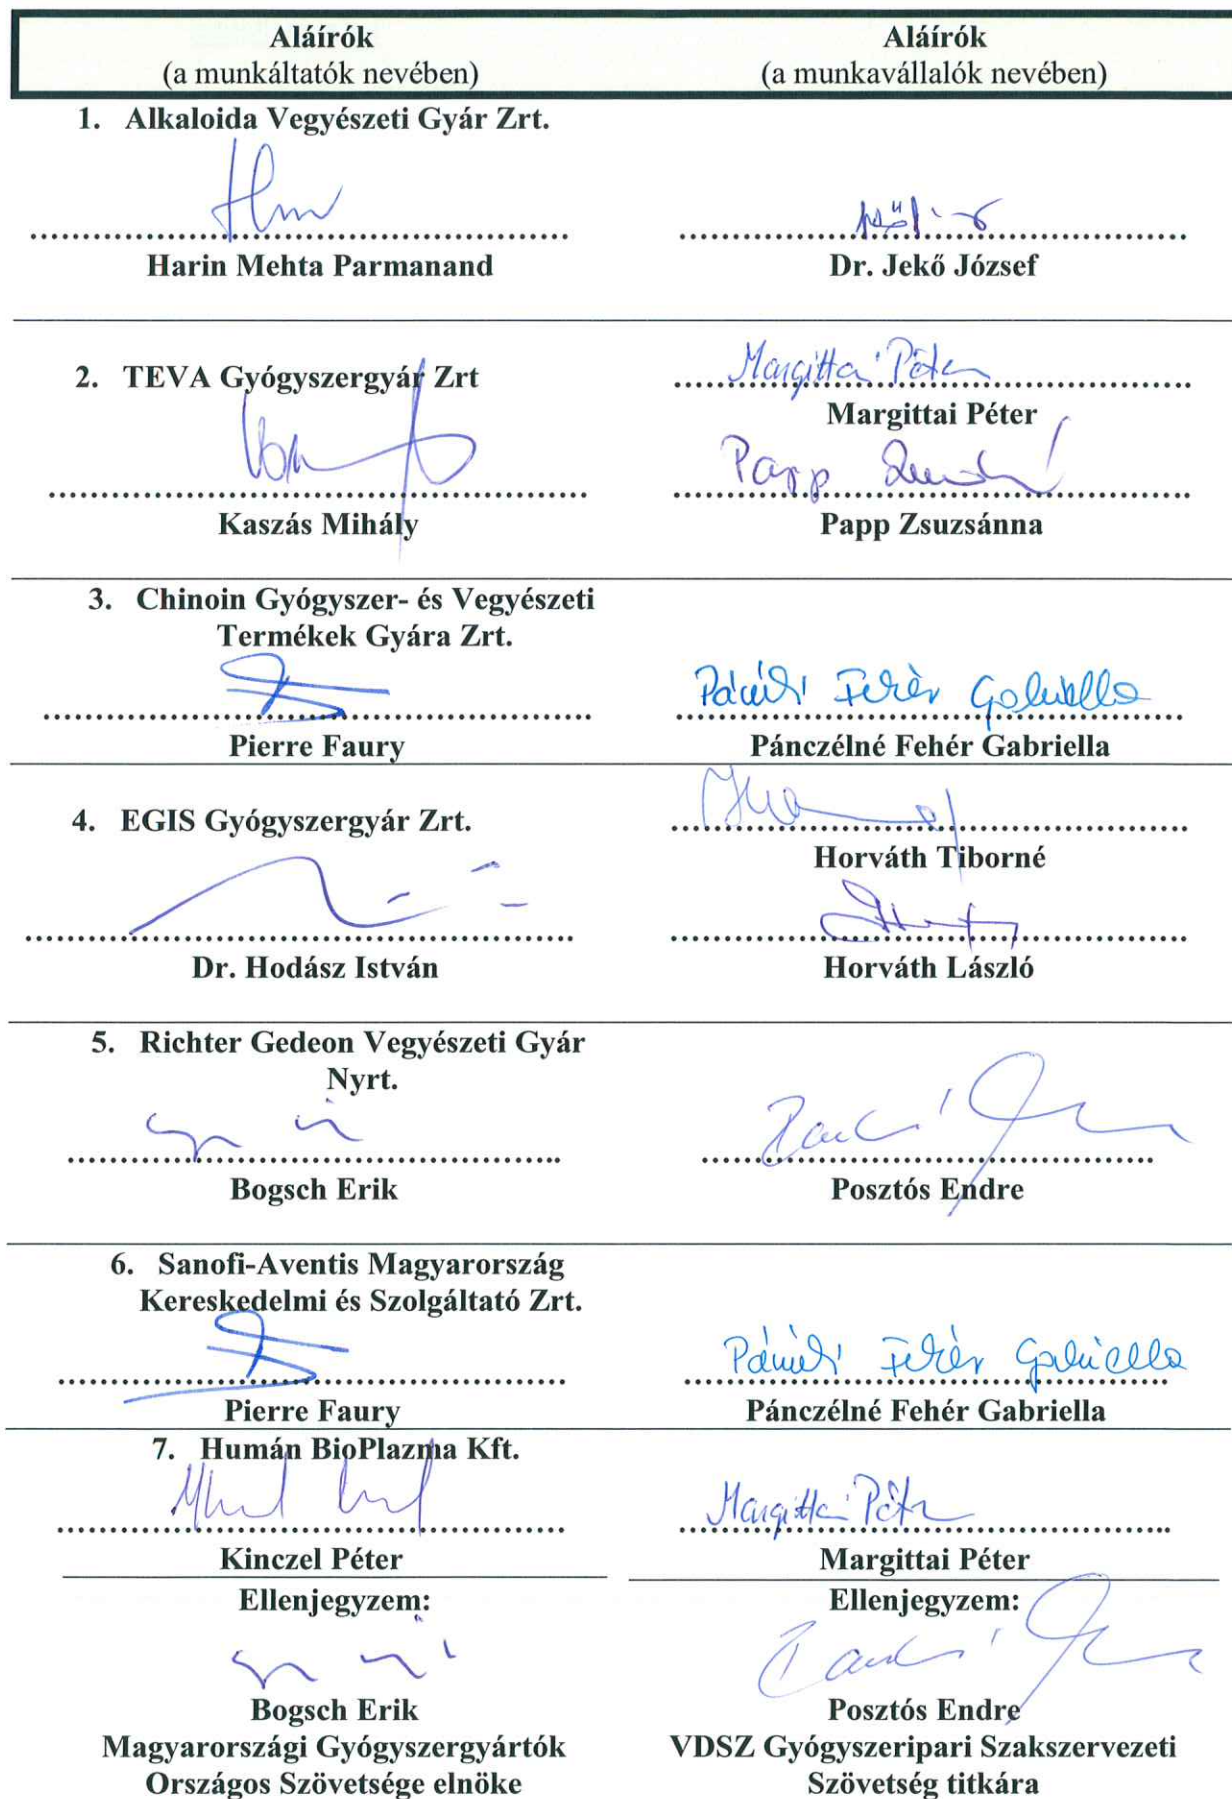 Aláírók
(a munkáltatók nevében)
Aláírók
(a munkavállalók nevében)
1. Alkaloida Vegyészeti Gyár Zrt.
Harin Mehta Parmanand
Dr. Jekő József
2. TEVA Gyógyszergyár Zrt
Kaszás Mihály
Margittai Péter
Margittai Péter
Papp
Papp Zsuzsánna
3. Chinoin Gyógyszer- és Vegyészeti
Termékek Gyára Zrt.
Pierre Faury
Fehér Gabriella
Pánczélné Fehér Gabriella
4. EGIS Gyógyszergyár Zrt.
Dr. Hodász István
Horváth Tiborné
Horváth László
5. Richter Gedeon Vegyészeti Gyár
Nyrt.
Bogsch Erik
Posztós Endre
6. Sanofi-Aventis Magyarország
Kereskedelmi és Szolgáltató Zrt.
Pierre Faury
Fehér Gabriella
Pánczélné Fehér Gabriella
7. Humán BioPlazma Kft.
Kinczel Péter
Margittai Péter
Margittai Péter
Ellenjegyzem:
Bogsch Erik
Magyarországi Gyógyszergyártók
Országos Szövetsége elnöke
Ellenjegyzem:
Posztós Endre
VDSZ Gyógyszeripari Szakszervezeti
Szövetség titkára